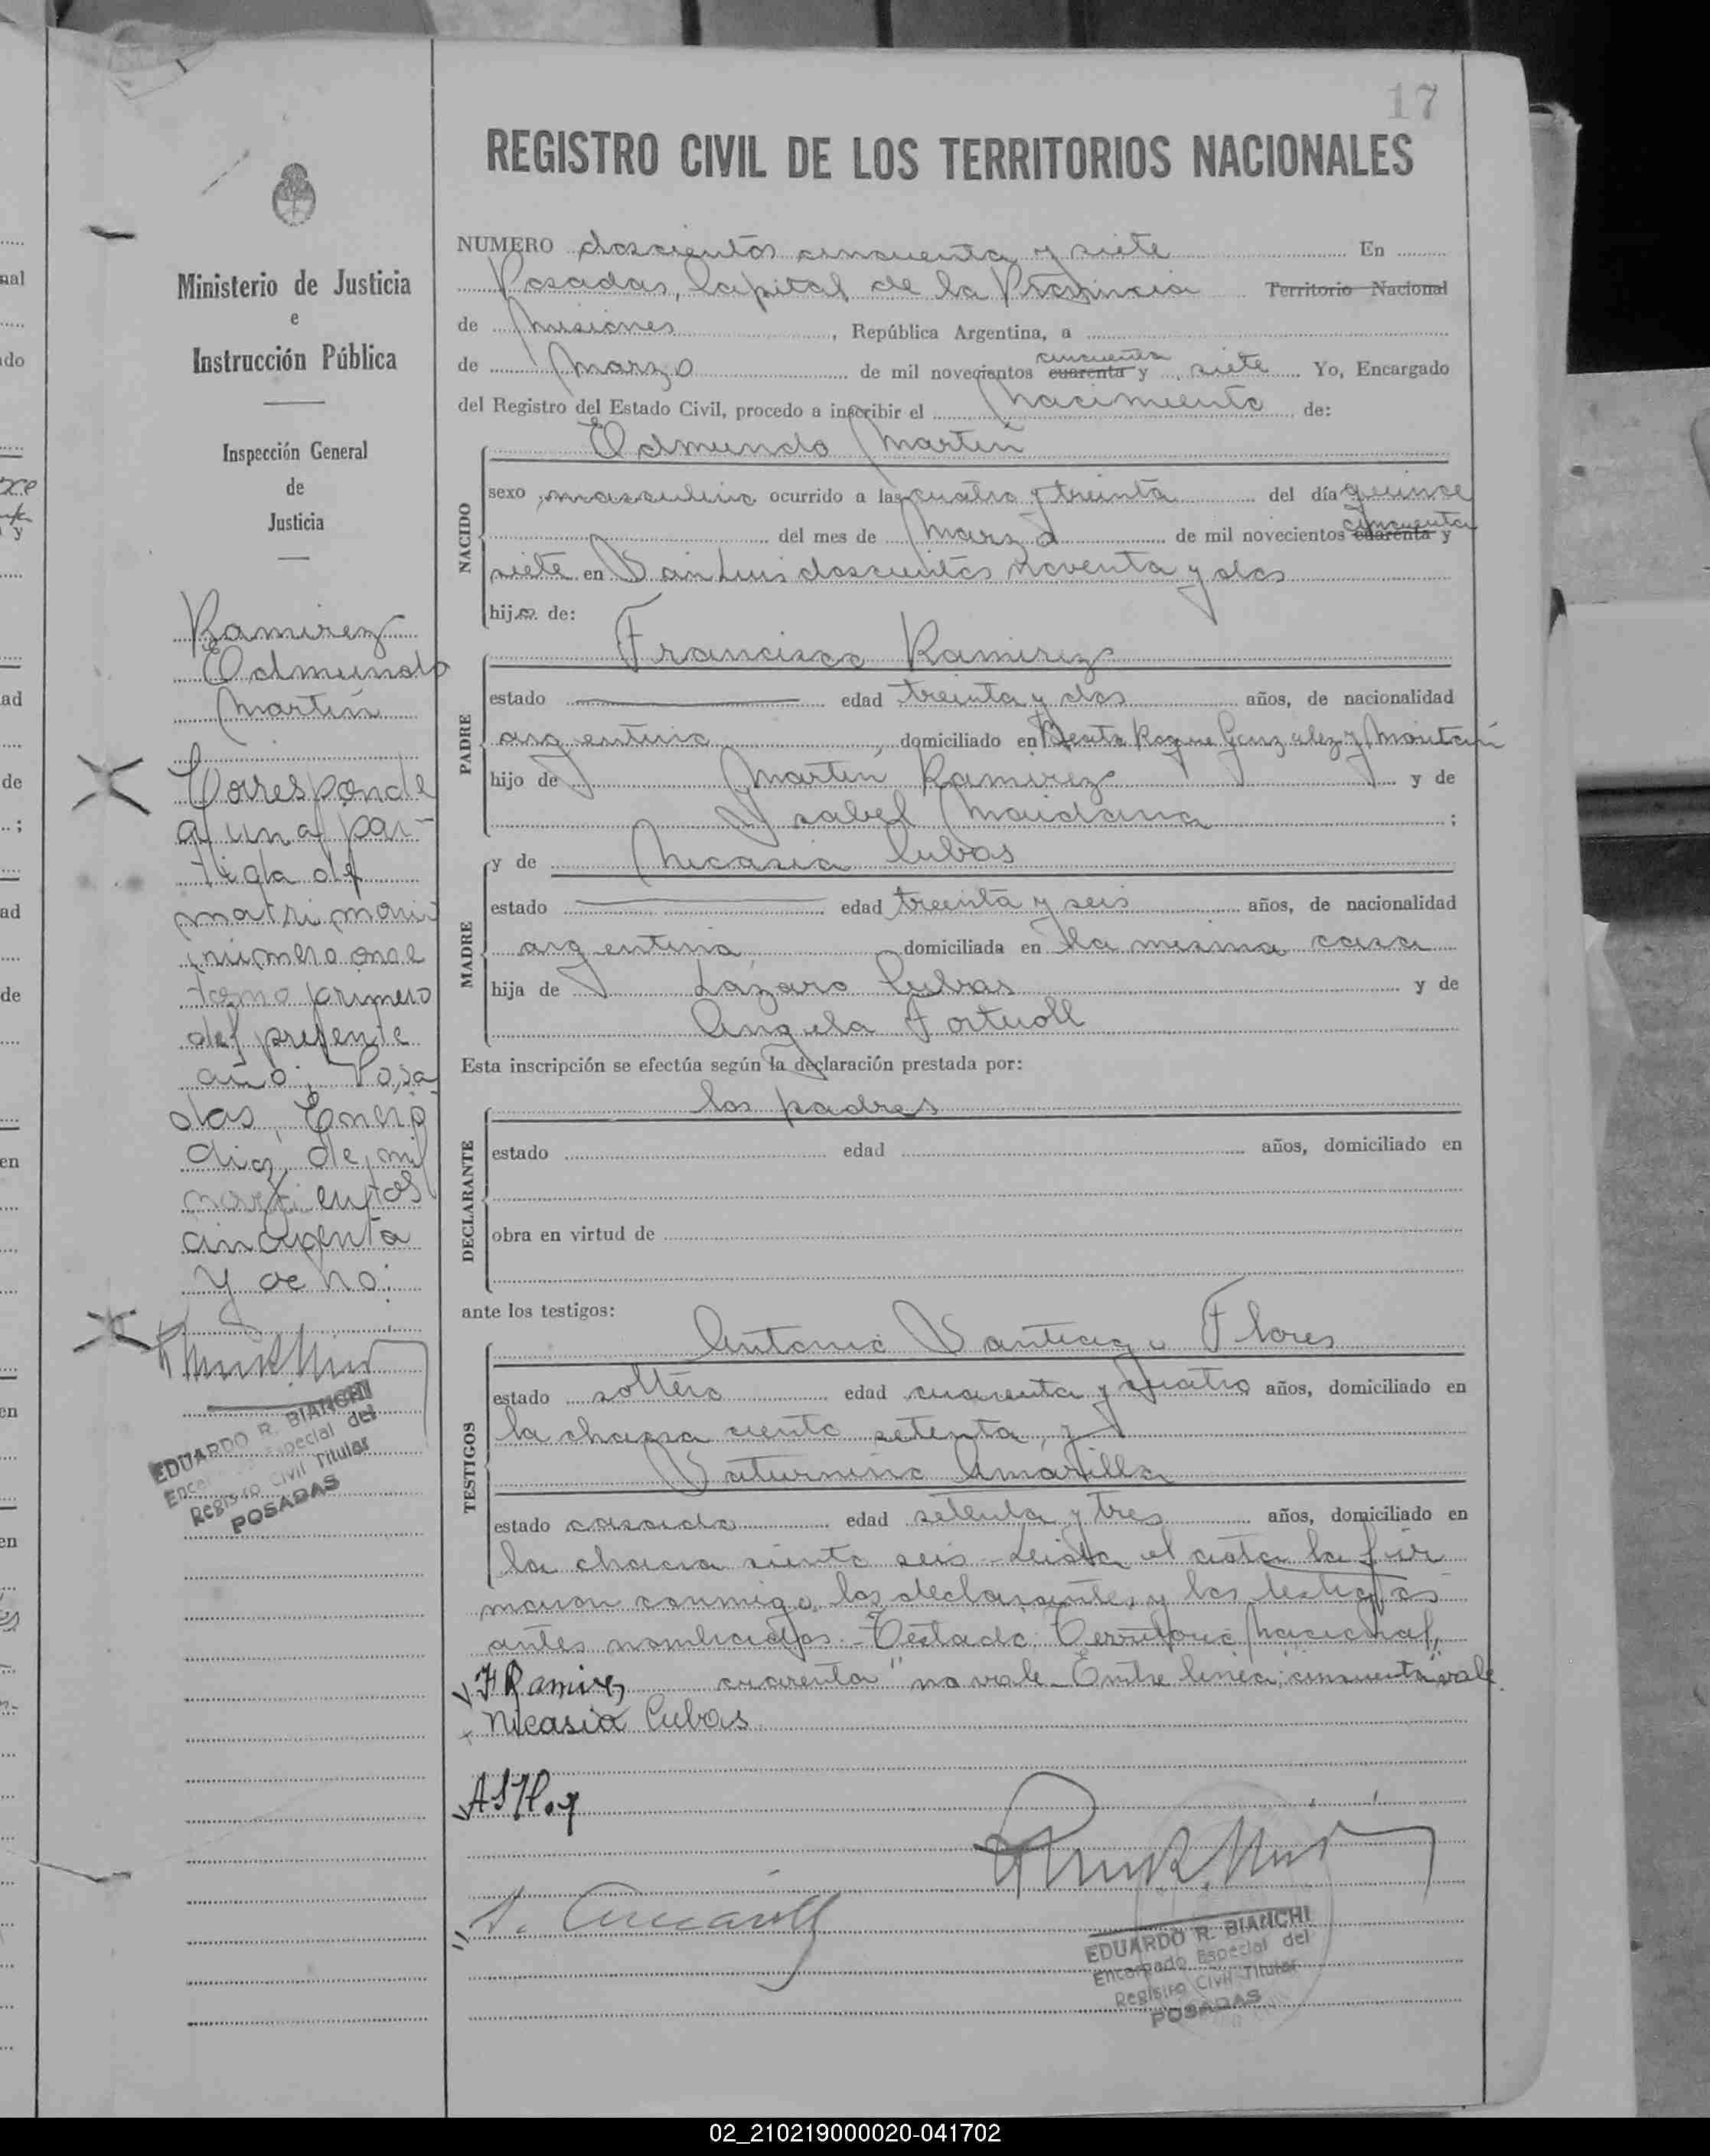 17
REGISTRO CIVIL DE LOS TERRITORIOS NACIONALES
Ministerio de Justicia
e
Instrucción Pública
Inspección General
de
Justicia
Ramirez
Edmundo
Martín
Corresponde
a una par-
tida de
matrimonio
número once
tomo primero
del presente
año; Posa
das, Enero
diez de mil
novecientos
cincuenta
y ocho.
EDUARDO R. BIANCHI
Encargado Especial del
Registro Civil Titular
POSADAS
NUMERO doscientos cincuenta y siete En
Posadas, Capital de la Provincia Territorio Nacional
de Misiones, República Argentina, a
de Marzo de mil novecientos cuarenta y cincuenta siete Yo, Encargado
del Registro del Estado Civil, procedo a inscribir el Nacimiento de:
NACIDO
Edmundo Martín
sexo masculino ocurrido a las cuatro y treinta del día quince
del mes de Marzo de mil novecientos cuarenta y cincuenta
siete en San Luis doscientos noventa y dos
hijo de:
PADRE
Francisco Ramirez
estado edad treinta y dos años, de nacionalidad
argentino, domiciliado en Beato Roque Gonzalez y
hijo de Martín Ramirez y de
Ysabel Maidana;
MADRE
y de Nicasia Cubas
estado edad treinta y seis años, de nacionalidad
argentina domiciliada en la misma casa
hija de Lázaro Cubas y de
Angela
Esta inscripción se efectúa según la declaración prestada por:
DECLARANTE
los padres
estado edad años, domiciliado en
obra en virtud de
ante los testigos:
TESTIGOS
Antonio Santiago Flores
estado soltero edad cuarenta y cuatro años, domiciliado en
la chacra ciento setenta, y
Saturnino Amarilla
estado casado edad setenta y tres años, domiciliado en
la chacra ciento seis - Leida el acta la fir
maron conmigo, los declarantes y los testigos
antes nombrados.- Testado: Territorio Nacional,
cuarenta" no vale - Entre linea: "cincuenta" vale.
F Ramirez
Nicasia Cubas
EDUARDO R. BIANCHI
Encargado Especial del
Registro Civil Titular
POSADAS
02_210219000020-041702